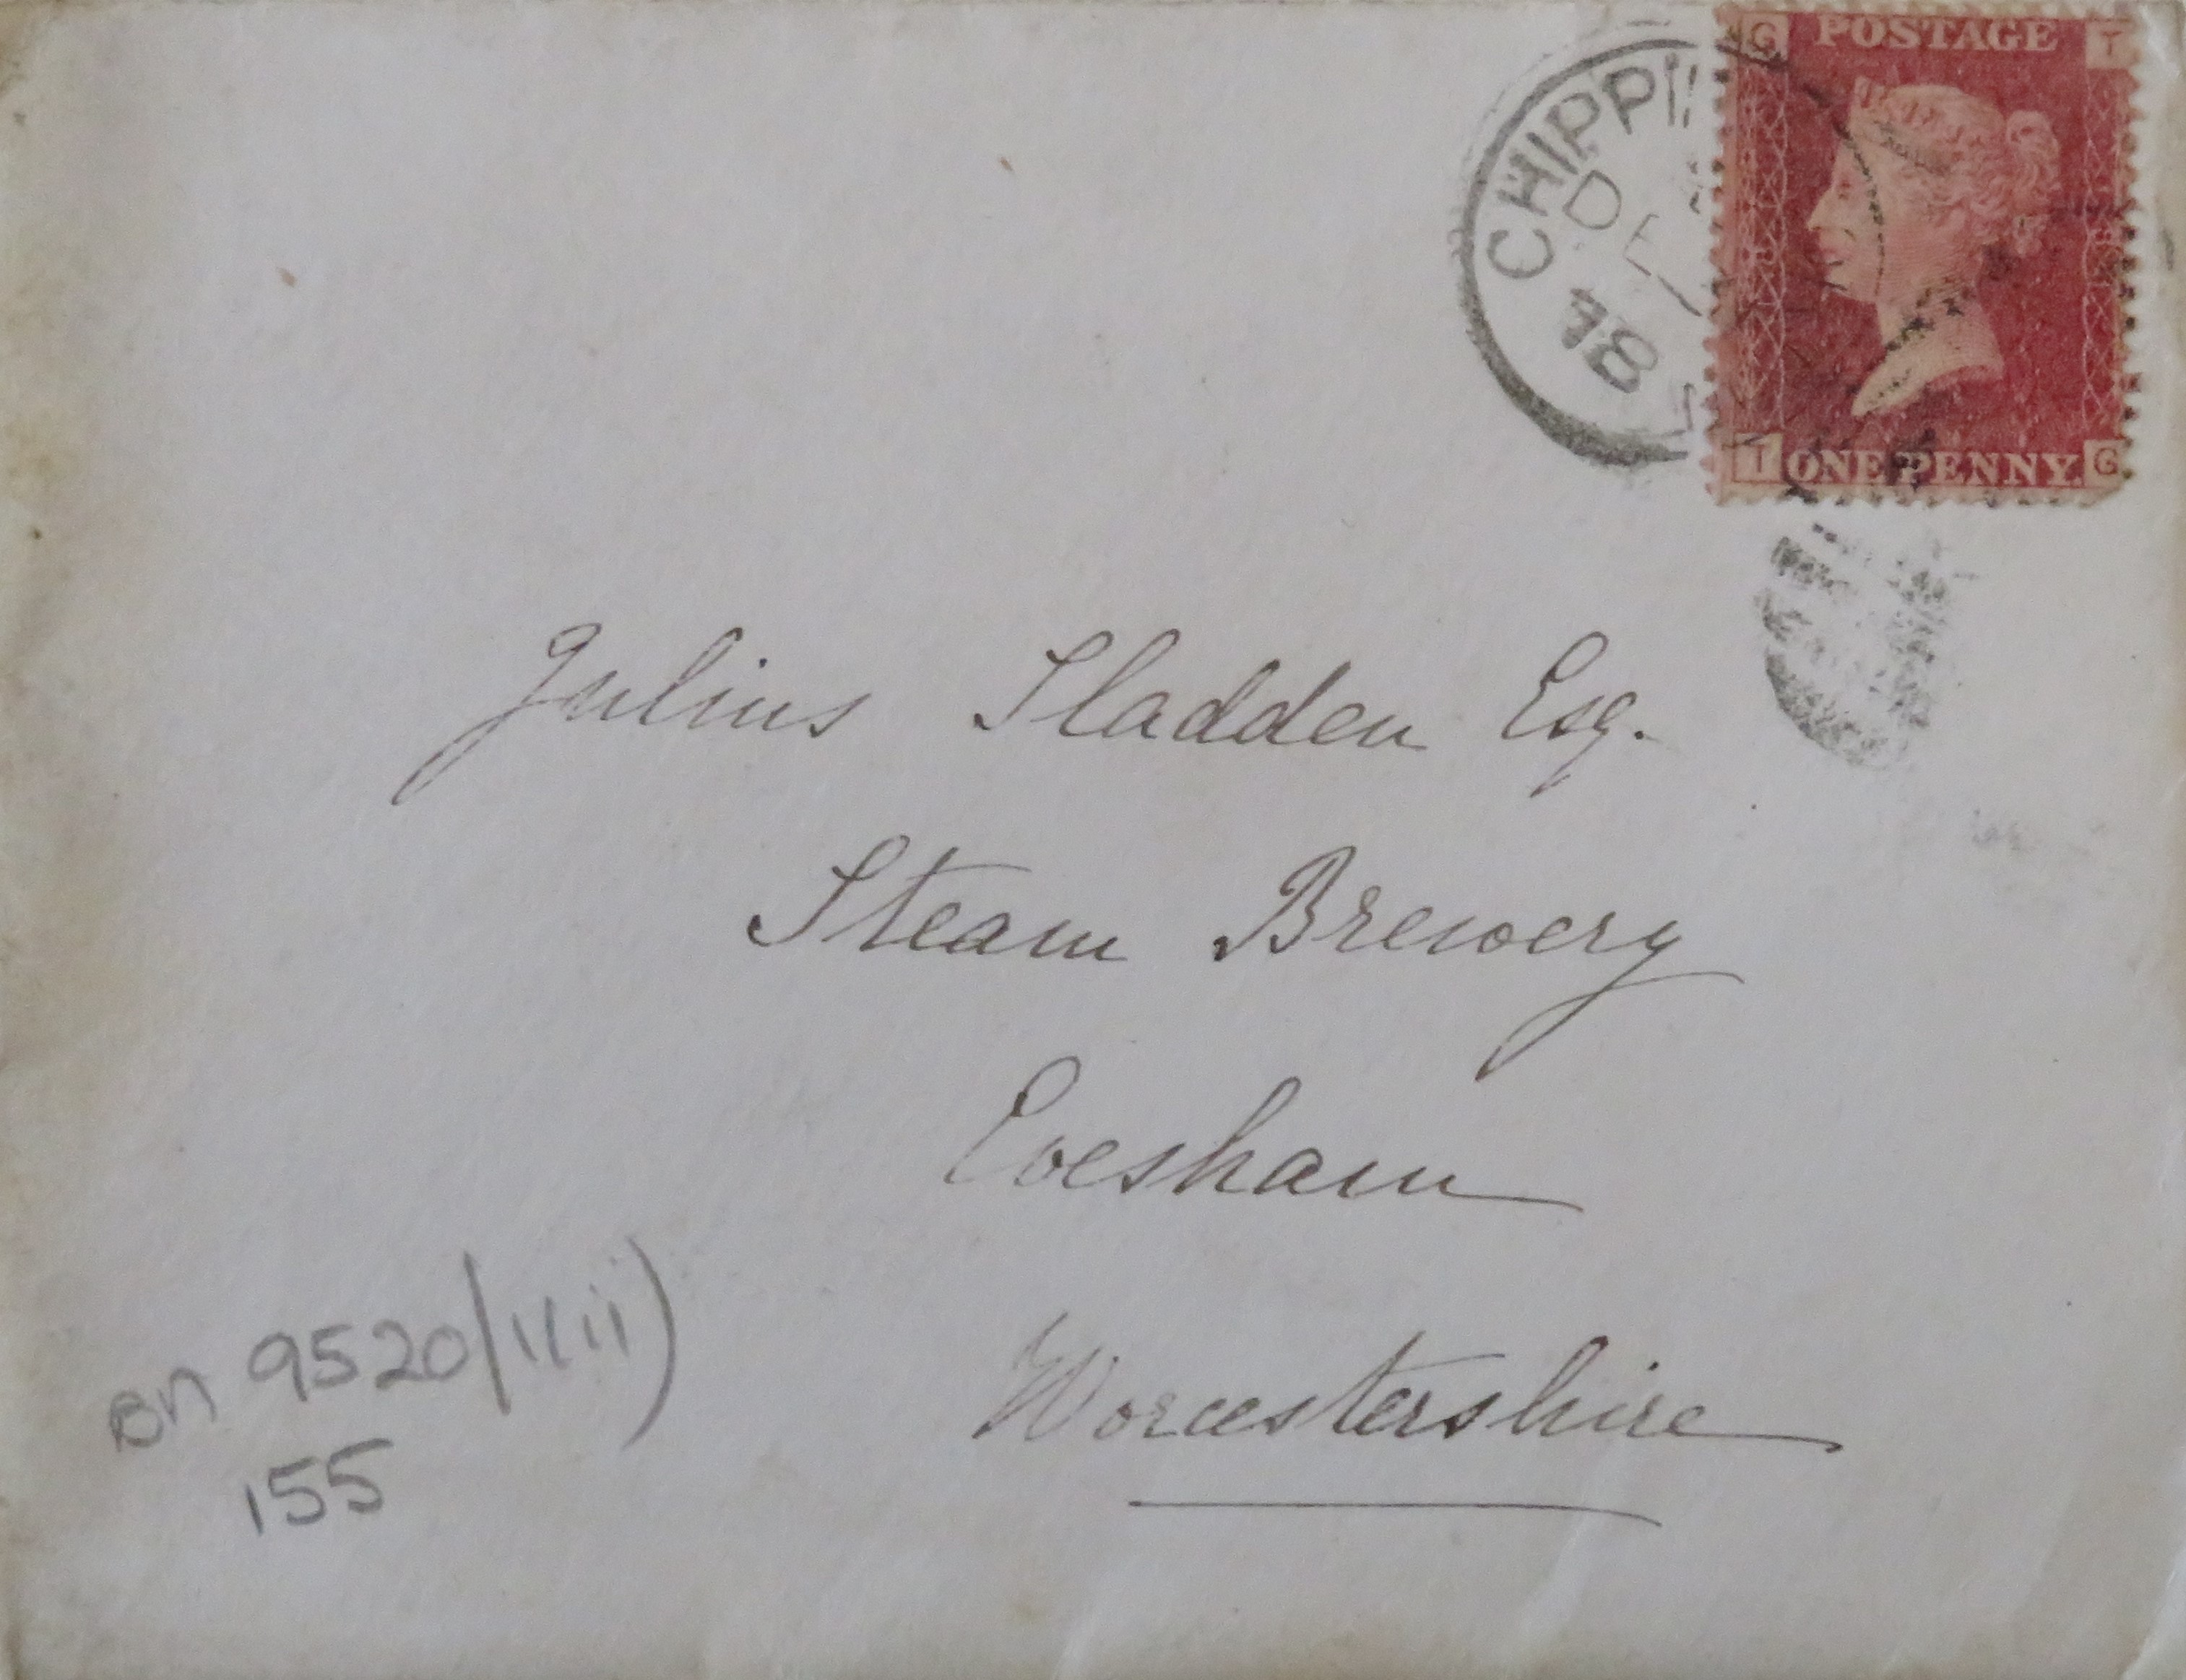 G POSTAGE T
CHIPPI
DE
78
T ONE PENNY. G
Julius Sladden Esq.
Steam Brewery
Evesham
Worcestershire
BN 9520/1(ii)
155